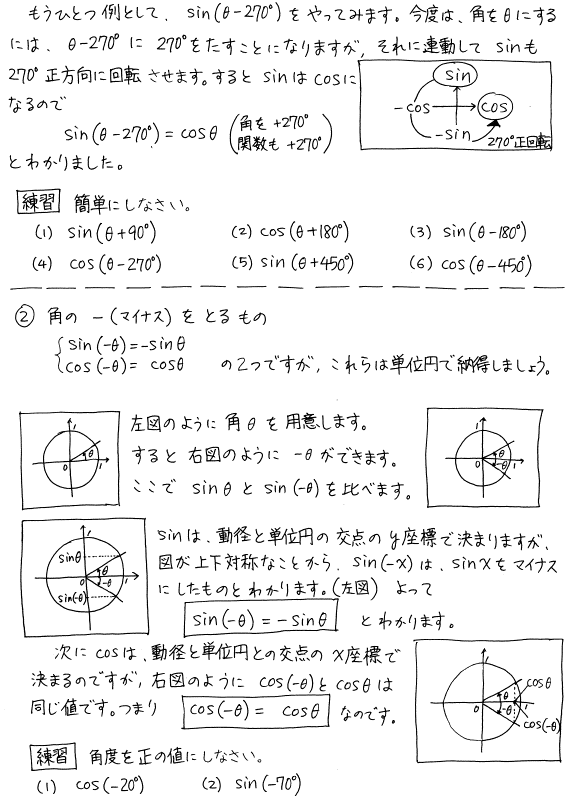 もうひとつ例として、sin(θ-270°)をやってみます。今度は、角をθにする
には、θ-270°に270°をたすことになりますが、それに連動してsinも
270°正方向に回転させます。するとsinはcosに
なるので
sin(θ-270°)=cosθ (角を+270° 関数も+270°)
とわかりました。
sin
-cos cos
-sin
270°正回転
練習 簡単にしなさい。
(1) sin(θ+90°) (2) cos(θ+180°) (3) sin(θ-180°)
(4) cos(θ-270°) (5) sin(θ+450°) (6) cos(θ-450°)
② 角の-(マイナス)をとるもの
sin(-θ)=-sinθ
cos(-θ)= cosθ の2つですが、これらは単位円で納得しましょう。
1 θ 0 1
左図のように角θを用意します。
すると右図のように-θができます。
ここでsinθとsin(-θ)を比べます。
1 θ 0 -θ 1
1 sinθ θ 0 -θ 1 sin(-θ)
sinは、動径と単位円の交点のy座標で決まりますが、
図が上下対称なことから、sin(-x)は、sinxをマイナス
にしたものとわかります。(左図) よって
sin(-θ)=-sinθ とわかります。
次にcosは、動径と単位円との交点のx座標で
決まるのですが、右図のようにcos(-θ)とcosθは
同じ値です。つまり cos(-θ)= cosθ なのです。
1 cosθ θ 0 -θ 1 cos(-θ)
練習 角度を正の値にしなさい。
(1) cos(-20°) (2) sin(-70°)